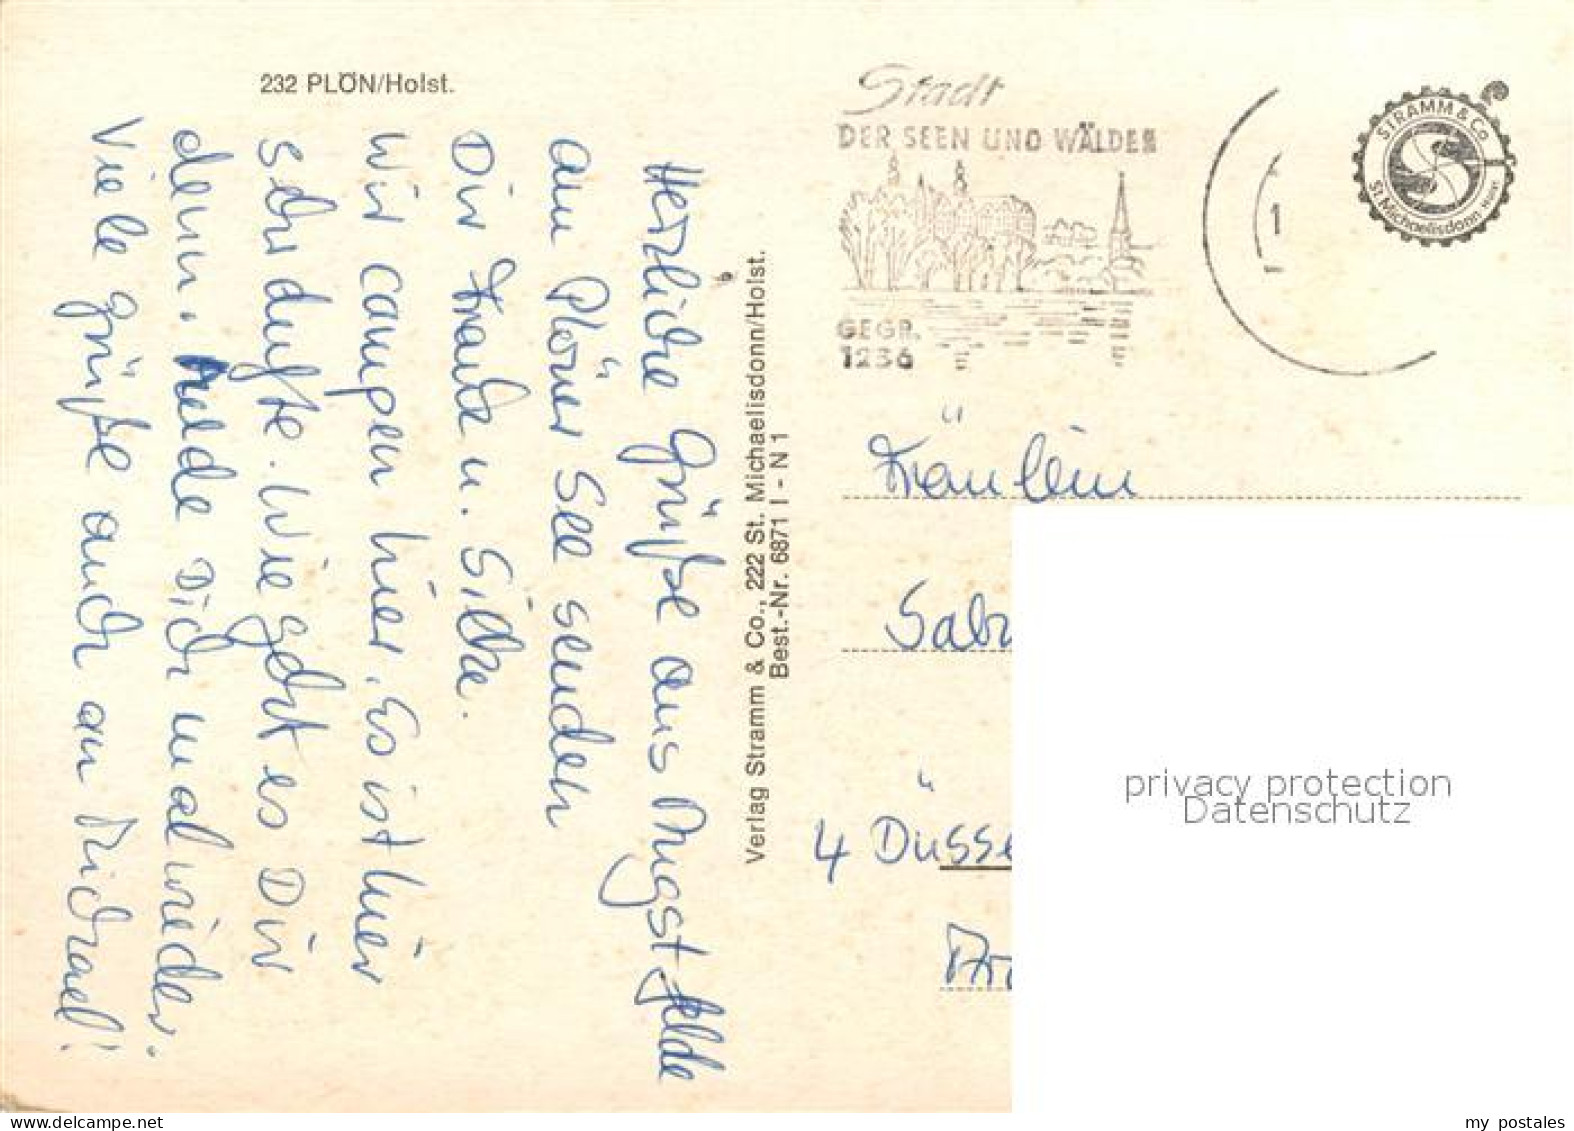 232 PLÖN/Holst.
Herzliche Grüße aus Augstfelde
am Plöner See senden
Dir Frauke u. Silke.
Wir campen hier. Es ist hier
sehr dufte. Wie geht es Dir
denn. Melde Dich mal wieder.
Viele Grüße auch an Michael!
Verlag Stramm & Co., 222 St. Michaelisdonn/Holst.
Best.-Nr. 6871 I - N 1
Stadt
DER SEEN UND WÄLDER
GEGR.
1236
1
STRAMM & Co.
St. Michaelisdonn Holst.
Fräulein
Sab
4 Düsse
privacy protection
Datenschutz
my postales
www.delcampe.net